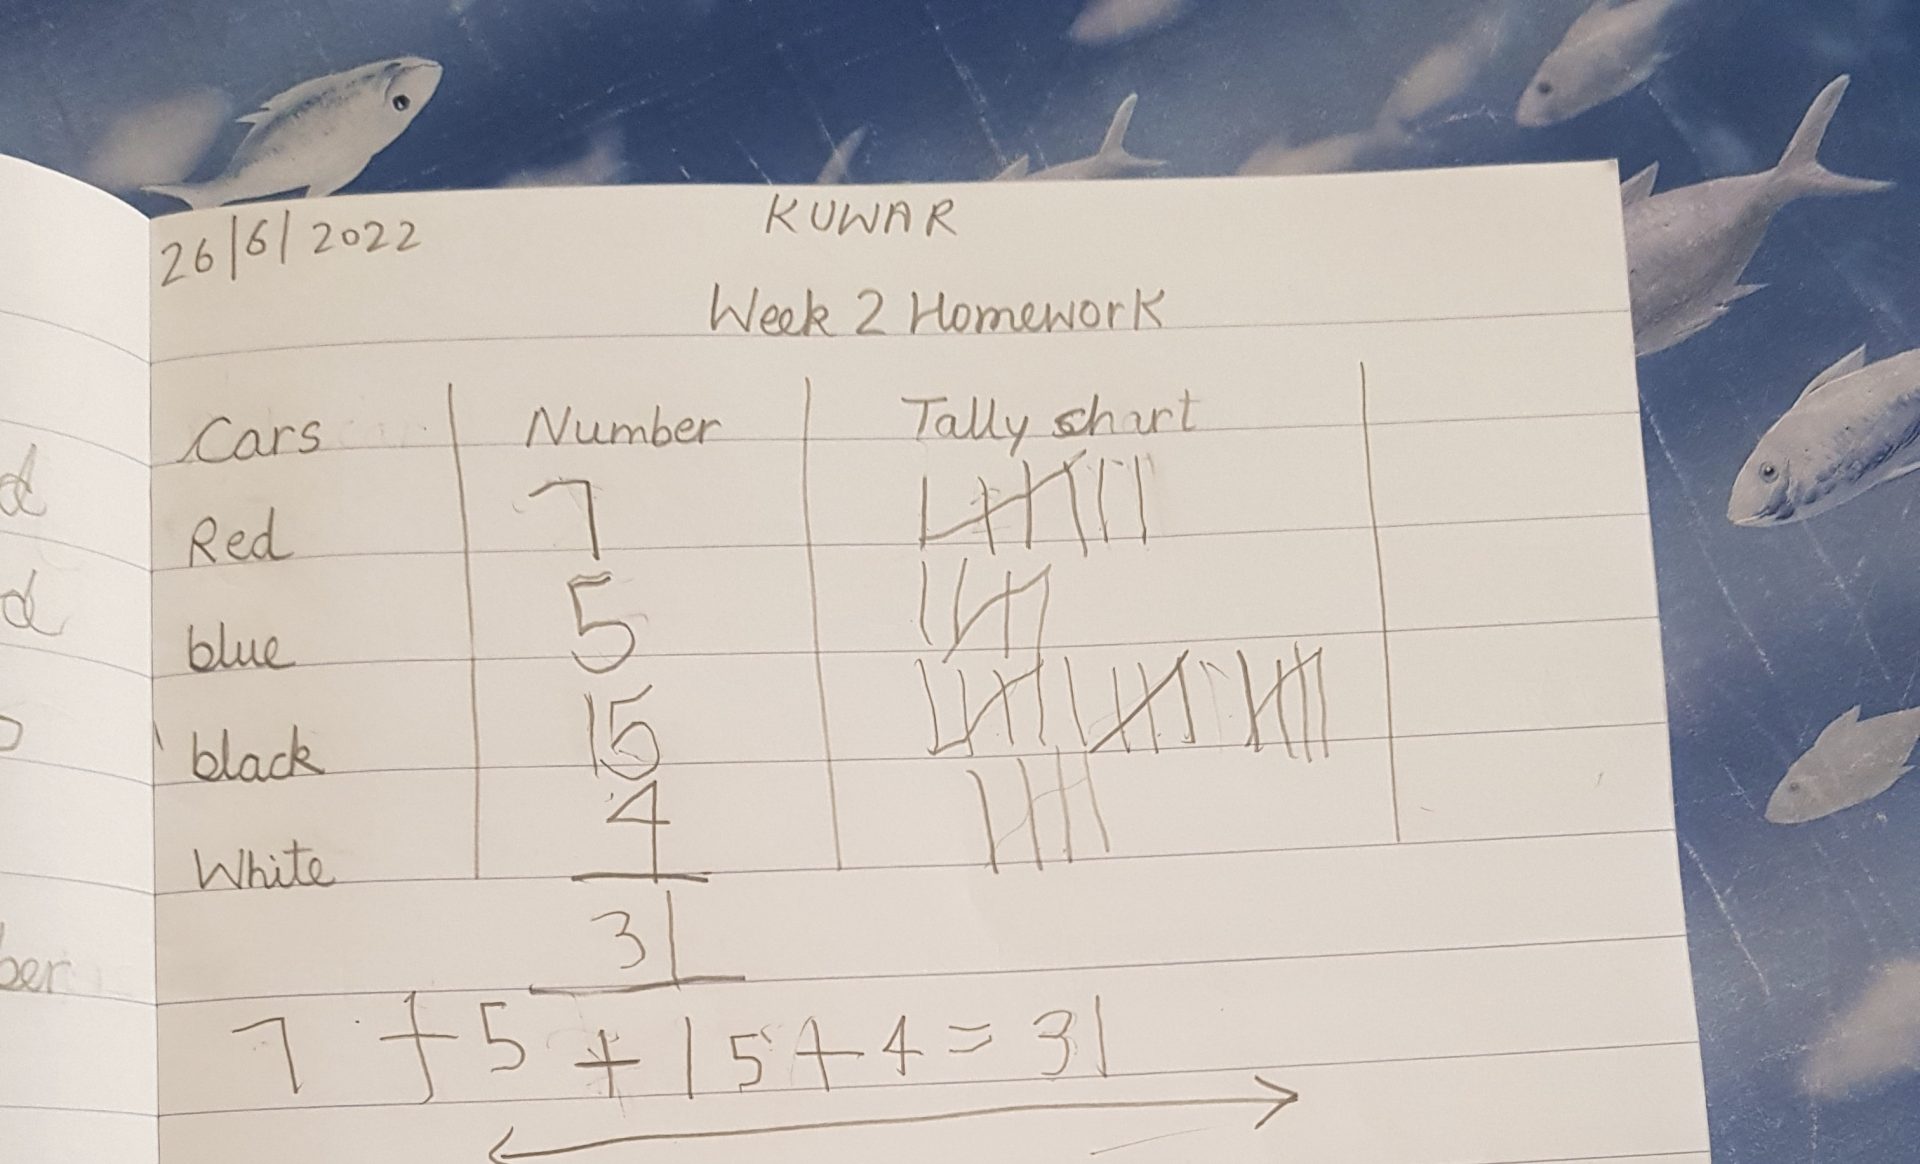 26/6/2022 KUWAR
Week 2 Homework
Cars Number Tally shart
Red 7
blue 5
black 15
White 4
31
7 + 5 + 15 + 4 = 31
d
d
ber